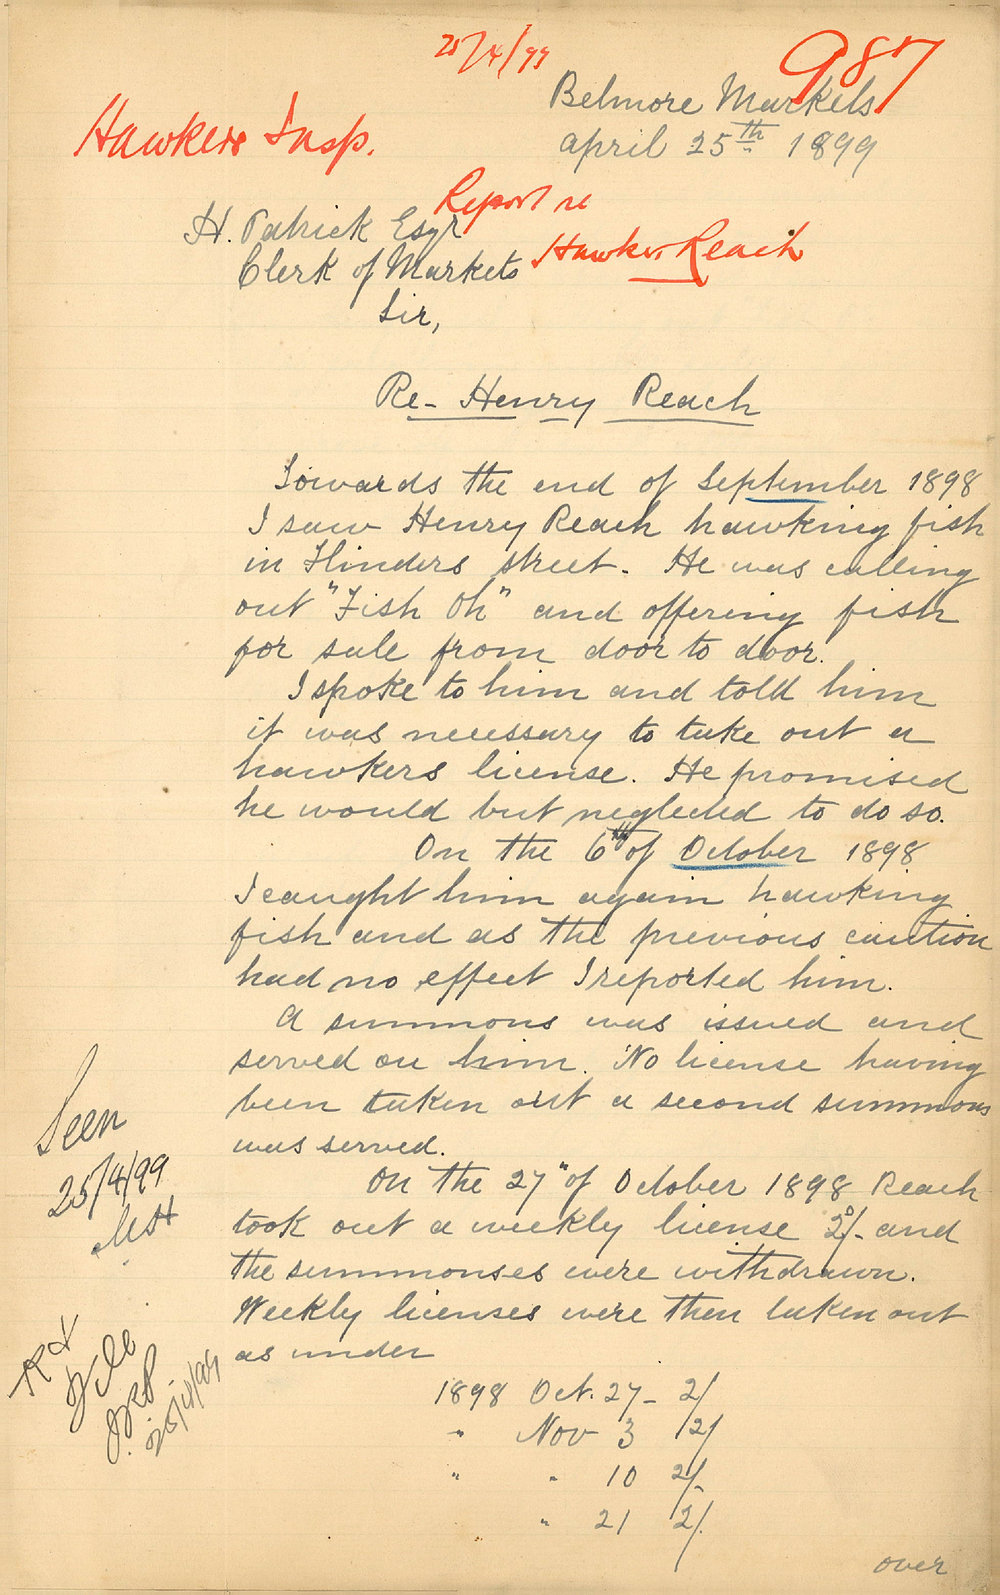 25/4/99
987
Hawkers Insp.
Belmore Markets
April 25th 1899
Report re
Hawker Reach
H. Patrick Esqr
Clerk of Markets
Sir,
Re- Henry Reach
Towards the end of September 1898
I saw Henry Reach hawking fish
in Flinders street. He was calling
out "Fish Oh" and offering fish
for sale from door to door.
I spoke to him and told him
it was necessary to take out a
hawkers license. He promised
he would but neglected to do so.
On the 6th of October 1898
I caught him again hawking
fish and as the previous caution
had no effect I reported him.
A summons was issued and
served on him. No license having
been taken out a second summons
was served.
On the 27" of October 1898 Reach
took out a weekly license 2/- and
the summonses were withdrawn.
Weekly licenses were then taken out
as under
1898 Oct. 27 - 2/
" Nov 3 2/
" " 10 2/-
" 21 2/.
over
Seen
25/4/99
File
25/4/99